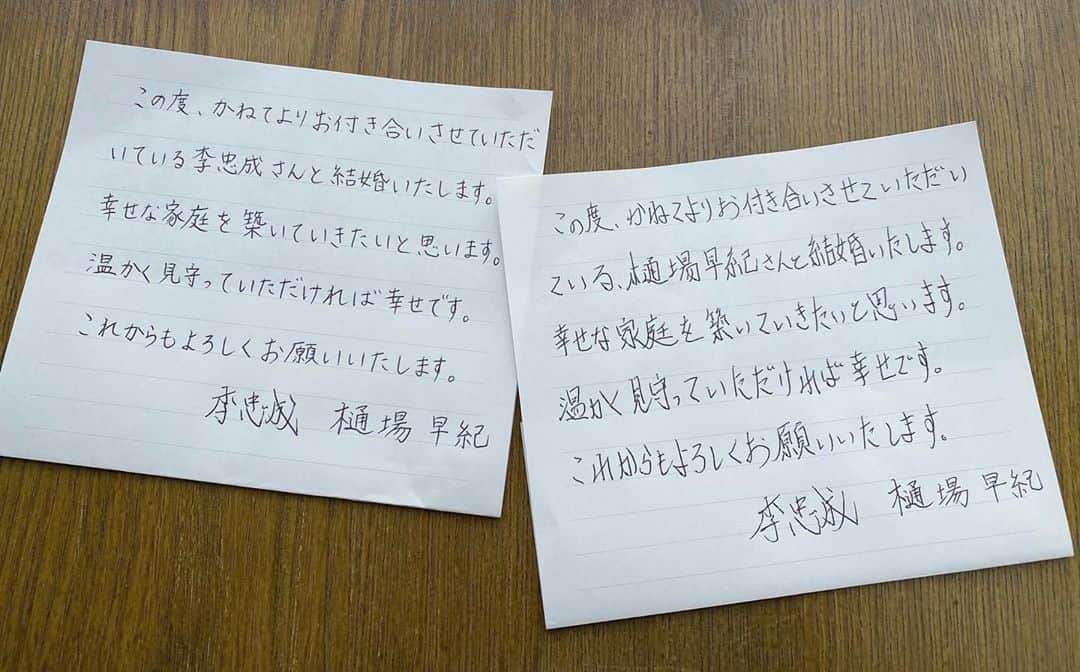 この度、かねてよりお付き合いさせていただ
いている李忠成さんと結婚いたします。
幸せな家庭を築いていきたいと思います。
温かく見守っていただければ幸せです。
これからもよろしくお願いいたします。
李忠成 樋場早紀
この度、かねてよりお付き合いさせていただい
ている、樋場早紀さんと結婚いたします。
幸せな家庭を築いていきたいと思います。
温かく見守っていただければ幸せです。
これからもよろしくお願いいたします。
李忠成 樋場早紀